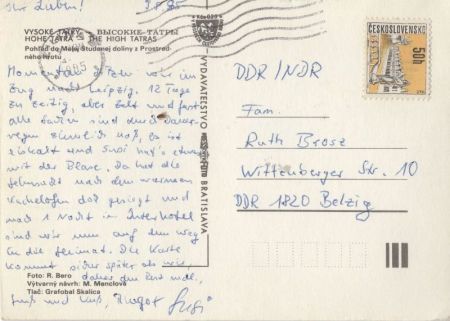 Ihr Lieben! 3.9.85
VYSOKÉ TATRY ВЫСОКИЕ ТАТРЫ
HOHE TATRA THE HIGH TATRAS
Pohľad do Malej Studenej doliny z Prostredného hrotu
Momentan sitzen wir im
Zug nach Leipzig. 12 Tage
zu zeitig, aber Zelt und fast
alle Sachen sind durch Dauerregen
naß, es ist
eiskalt und Susi hat's etwas
mit der Blase. Da hat die
Sehnsucht nach dem warmen
Kachelofen doch gesiegt und
nach 1 Nacht im Interhotel
sind wir nun auf dem Weg
in die Heimat. Die Karte
kommt sicher später als wir,
daher den Rest mdl.
Gruß und Kuß, Margot Susi
Foto: R. Bero
Výtvarný návrh: M. Manclová
Tlač: Grafobal Skalica
VYDAVATEĽSTVO BRATISLAVA
ČESKOSLOVENSKO
50h
DDR / NDR
Fam.
Ruth Brosz
Wittenberger Str. 10
DDR 1820 Belzig